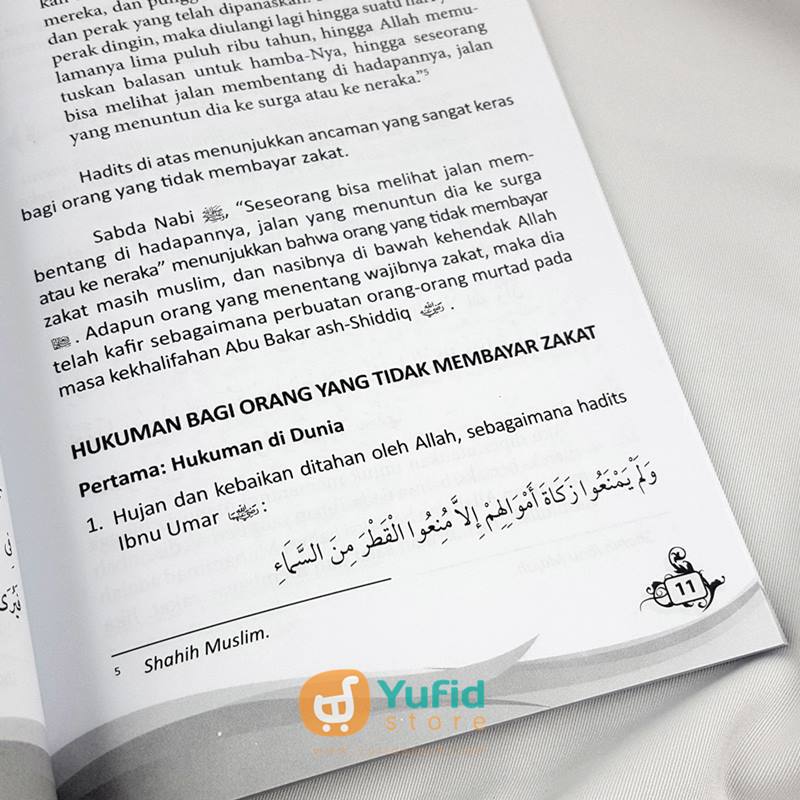 mereka, dan
dan perak yang telah dipanaskan.
perak dingin, maka diulangi lagi hingga suatu
lamanya lima puluh ribu tahun, hingga Allah memu-
tuskan balasan untuk hamba-Nya, hingga seseorang
bisa melihat jalan membentang di hadapannya, jalan
yang menuntun dia ke surga atau ke neraka."5
Hadits di atas menunjukkan ancaman yang sangat keras
bagi orang yang tidak membayar zakat.
Sabda Nabi ﷺ, “Seseorang bisa melihat jalan mem-
bentang di hadapannya, jalan yang menuntun dia ke surga
atau ke neraka” menunjukkan bahwa orang yang tidak membayar
zakat masih muslim, dan nasibnya di bawah kehendak Allah
. Adapun orang yang menentang wajibnya zakat, maka dia
telah kafir sebagaimana perbuatan orang-orang murtad pada
masa kekhalifahan Abu Bakar ash-Shiddiq .
HUKUMAN BAGI ORANG YANG TIDAK MEMBAYAR ZAKAT
Pertama: Hukuman di Dunia
1. Hujan dan kebaikan ditahan oleh Allah, sebagaimana hadits
Ibnu Umar :
وَلَمْ يَمْنَعُوا زَكَاةَ أَمْوَالِهِمْ إِلاَّ مُنِعُوا الْقَطْرَ مِنَ السَّمَاءِ
11
5 Shahih Muslim.
Yufid
store